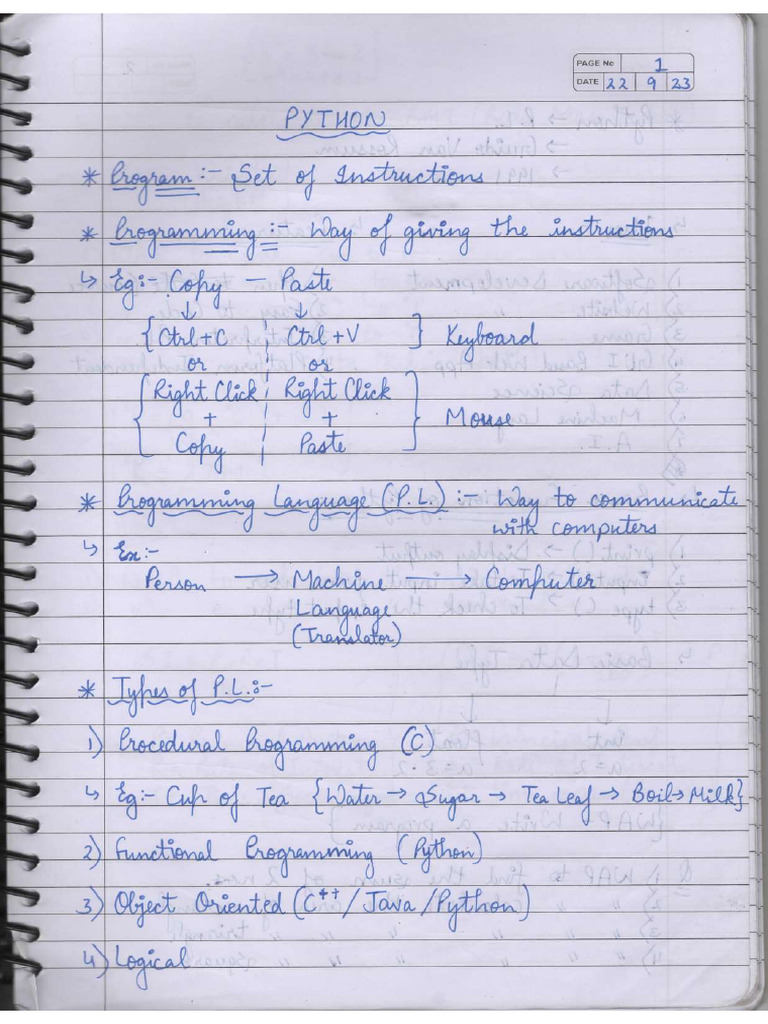 PAGE No 1
DATE 22 9 23
PYTHON
* Program :- Set of Instructions
* Programming :- Way of giving the instructions
↳ Eg:- Copy - Paste
↓ ↓
{ Ctrl+C ¦ Ctrl+V } Keyboard
or or
{ Right Click ¦ Right Click }
+ + Mouse
Copy ¦ Paste
* Programming Language (P.L.) :- Way to communicate
with computers
↳ Ex:-
Person → Machine → Computer
Language
(Translator)
* Types of P.L.:-
1) Procedural Programming (C)
↳ Eg:- Cup of Tea {Water → Sugar → Tea Leaf → Boil → Milk}
2) Functional Programming (Python)
3) Object Oriented (C++/Java/Python)
4) Logical